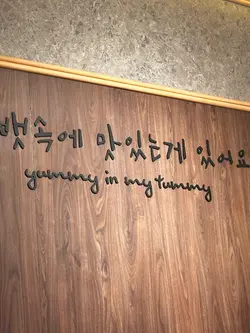 뱃속에 맛있는게 있어요
yummy in my tummy